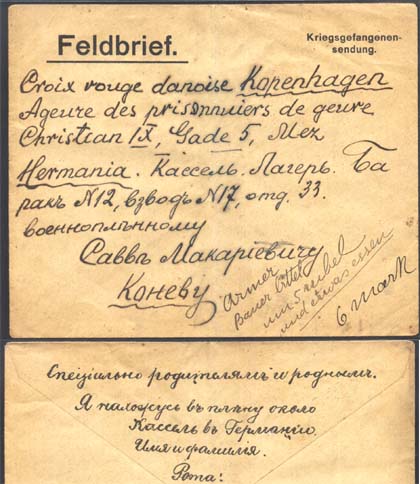 Feldbrief.
Kriegsgefangenen-
sendung.
Croix rouge danoise Kopenhagen
Agence des prisonniers de geure
Christian IX, Gade 5, Mez
Hermania. Кассель. Лагерь. Ба
ракъ N12, взводъ N17, отд. 33.
военноплѣнному
Саввѣ Макаріевичу
Коневу
Armer
Bauer bittet
um 5 rubel
und etwas essen
6 Mark
Спеціально родителямъ и роднымъ.
Я нахожусь въ плѣну около
Кассель въ Германіи.
Имя и фамилія.
Рота: